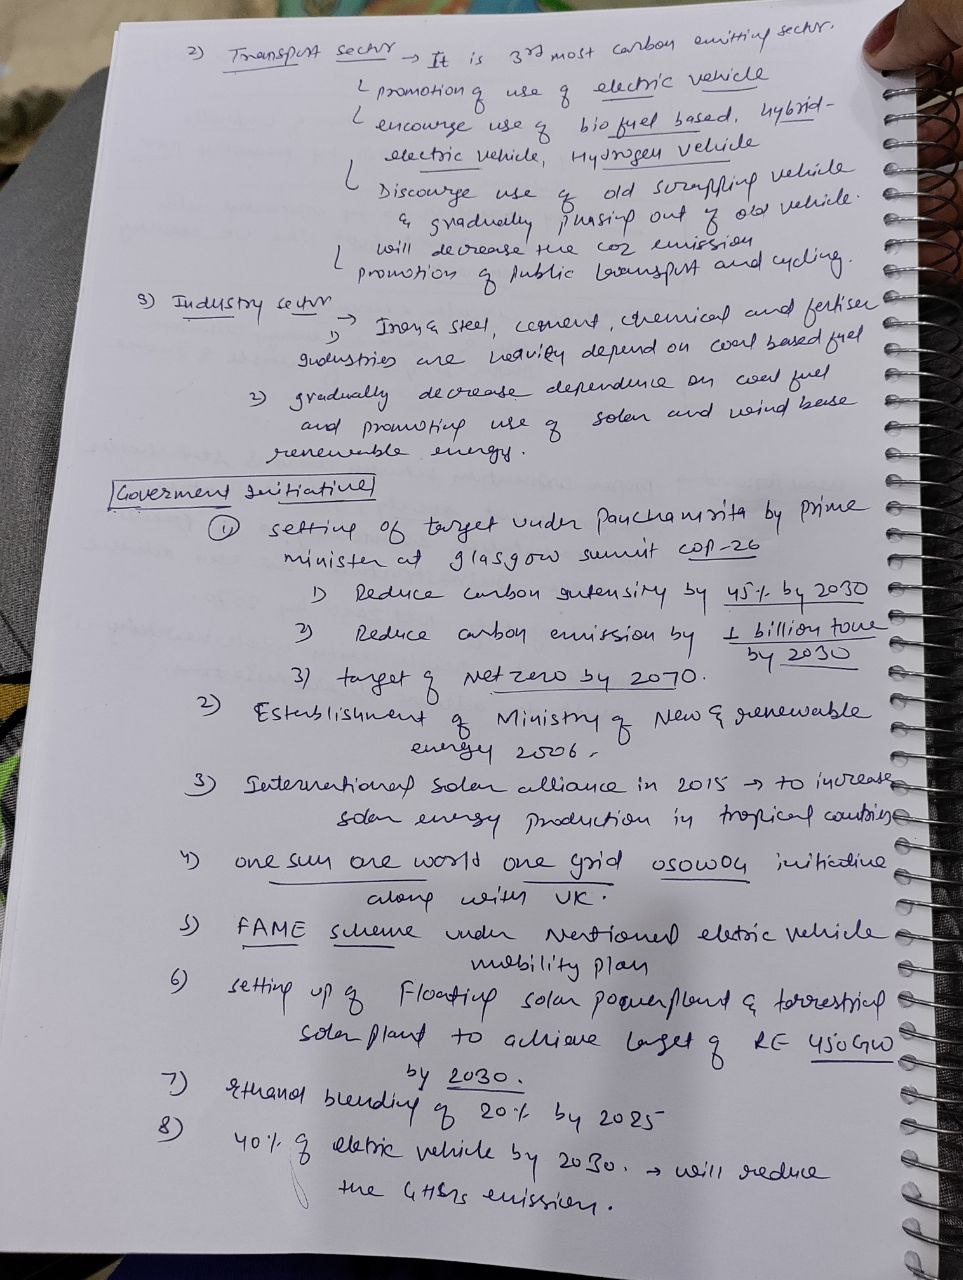 2) Transport sector → It is 3rd most carbon emitting sector.
promotion of use of electric vehicle
encourge use of bio fuel based, hybrid-
electric vehicle, Hydrogen vehicle
Discourge use of old scrapping vehicle
& gradually phasing out of old vehicle.
will decrease the co2 emission
promotion of public transport and cycling.
3) Industry sector →
1) Iron & steel, cement, chemical and fertiser
industries are heavily depend on coal based fuel
2) gradually decrease dependence on coal fuel
and promoting use of solar and wind base
renewable energy.
Goverment Initiative
1) setting of target under panchamrita by prime
minister at glasgow summit COP-26
1) Reduce carbon intensity by 45% by 2030
2) Reduce carbon emission by 1 billion tone
by 2030
3) target of Net zero by 2070.
2) Establishment of Ministry of New & renewable
energy 2006.
3) International solar alliance in 2015 → to increase
solar energy production in tropical coutries
4) one sun one world one grid OSOWOG initiative
along with UK.
5) FAME scheme under National eletric vehicle
mobility plan
6) setting up of Floating solar powerplant & terrestrial
solar plant to achieve target of RE 450GW
by 2030.
7) Ethanol blending of 20% by 2025
8) 40% of eletric vehicle by 2030. → will reduce
the GHGs emission.